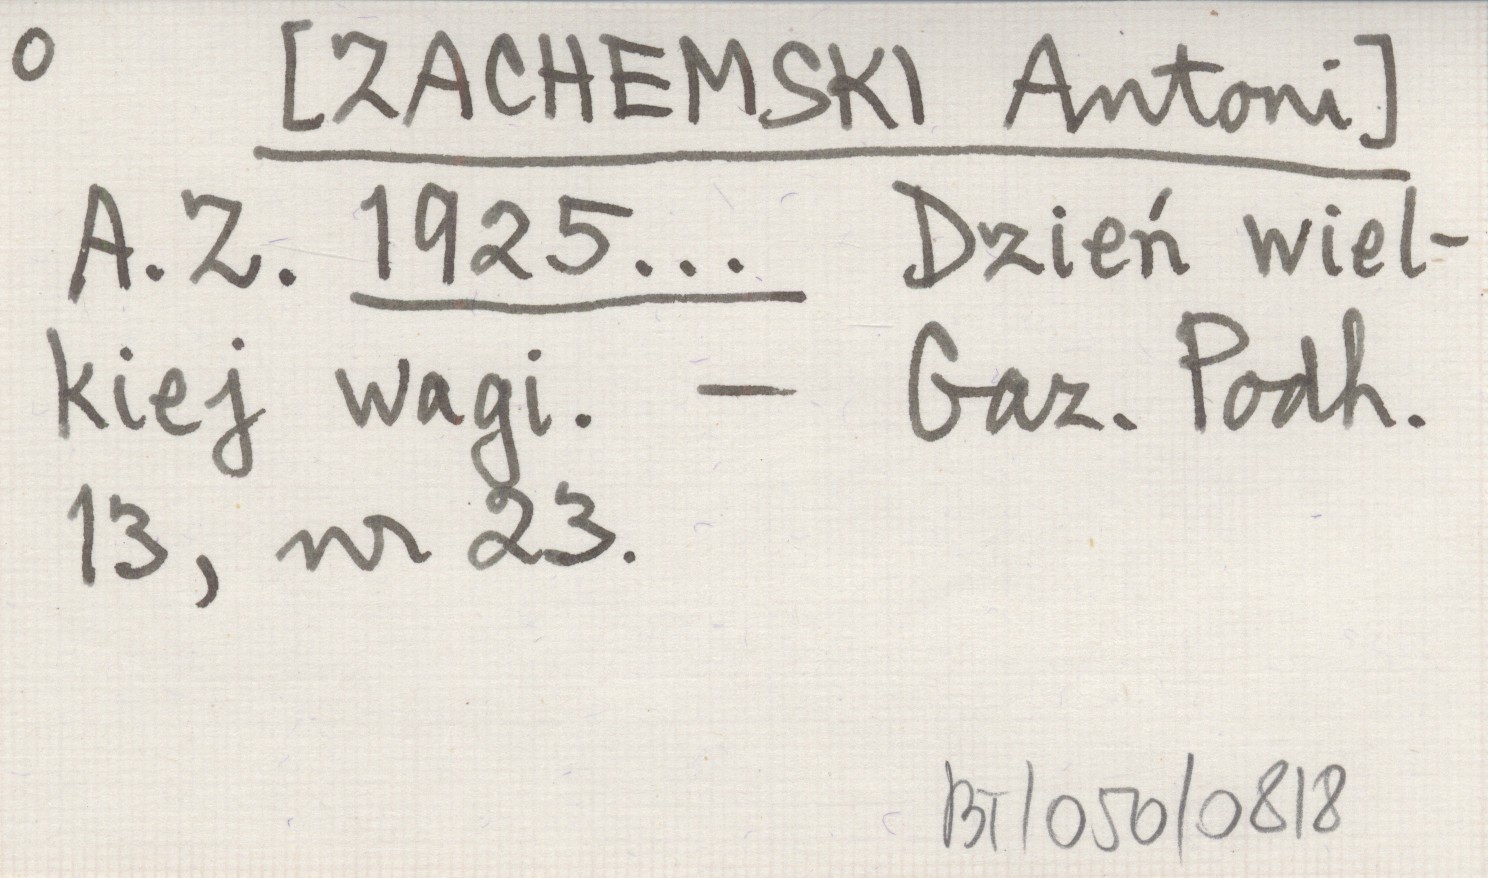 o [ZACHEMSKI Antoni]
A.Z. 1925... Dzień wiel-
kiej wagi. — Gaz. Podh.
13, nr 23.
BT/050/0818